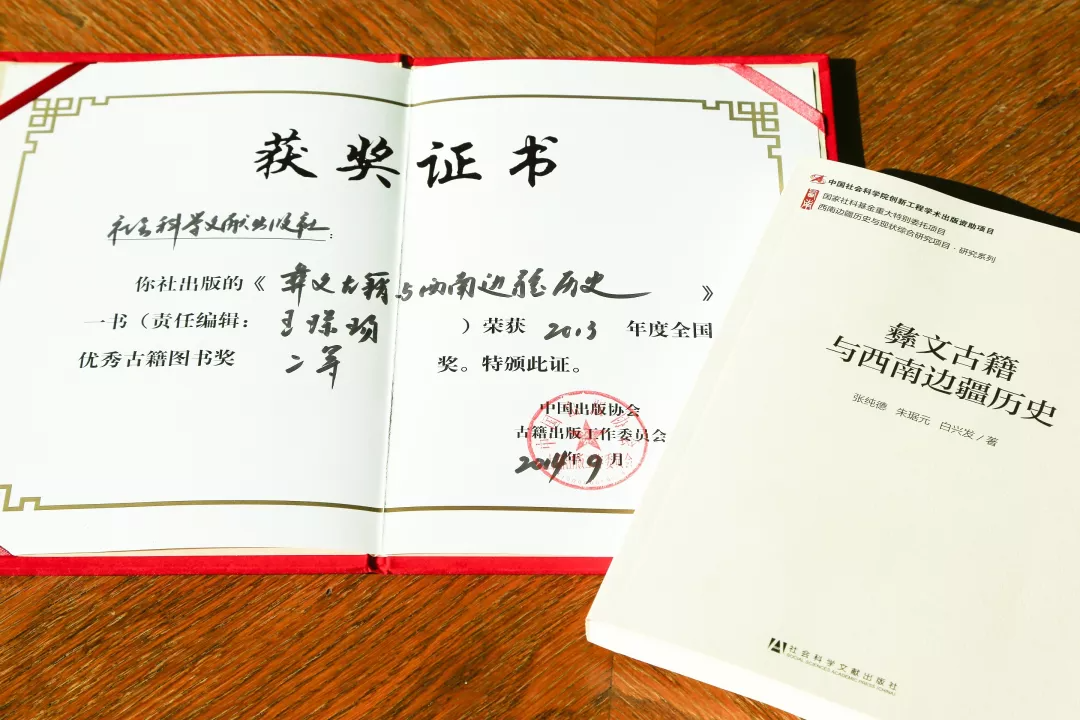 获奖证书
社会科学文献出版社：
你社出版的《彝文古籍与西南边疆历史》
一书（责任编辑：）荣获 2013 年度全国
优秀古籍图书奖 二等 奖。特颁此证。
中国出版协会
古籍出版工作委员会
2014年9月
中国社会科学院创新工程学术出版资助项目
国家社科基金重大特别委托项目
西南边疆历史与现状综合研究项目·研究系列
彝文古籍
与西南边疆历史
张纯德 朱琚元 白兴发／著
社会科学文献出版社
SOCIAL SCIENCES ACADEMIC PRESS (CHINA)